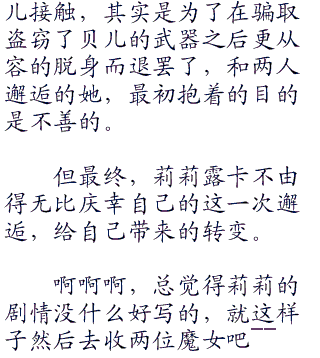 儿接触，其实是为了在骗取
盗窃了贝儿的武器之后更从
容的脱身而退罢了，和两人
邂逅的她，最初抱着的目的
是不善的。
但最终，莉莉露卡不由
得无比庆幸自己的这一次邂
逅，给自己带来的转变。
啊啊啊，总觉得莉莉的
剧情没什么好写的，就这样
子然后去收两位魔女吧——